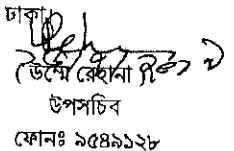 ঢাকা।
(উম্মে রেহানা)
উপসচিব
ফোনঃ ৯৫৪৯১২৮